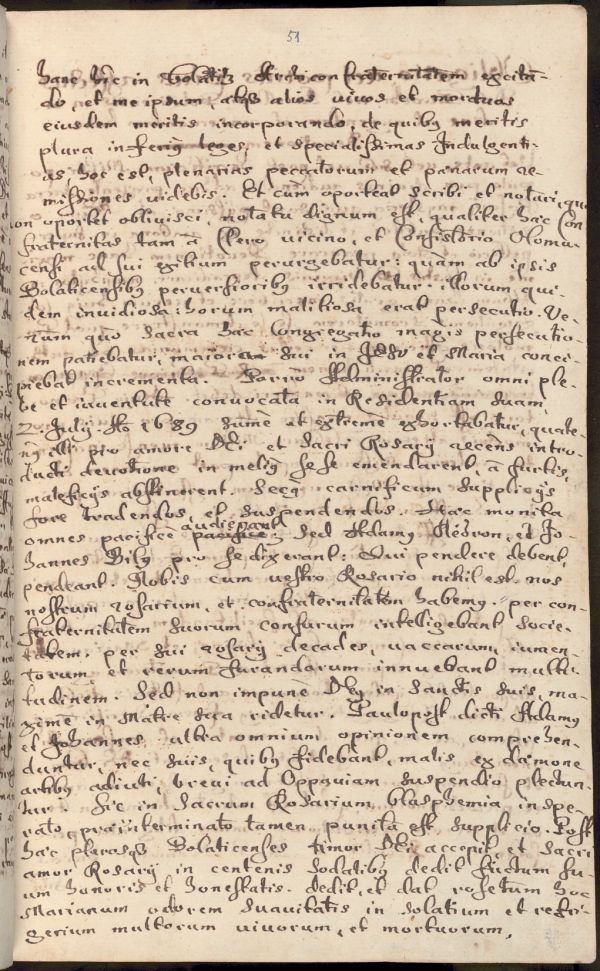 51
hanc hic in Bolatitz Archiconfraternitatem excitan-
do, et me ipsum, atq3 alios vivos et mortuos
eiusdem meritis incorporando, de quib9 meritis
plura inferi9 leges, et specialissimas Indulgenti-
as hoc est, plenarias peccatorum et pænarum re-
missiones videbis. Et cùm oporteat scribi et notari, quo
non oportet oblivisci, notatu dignum est, qualiter hæc Con
fraternitas tam â Clero vicino, et Consistorio Olomu-
censi ad sui exitium perurgebatur: quàm ab ipsis
Bolaticensib9 perversiorib9 irridebatur. illorum qui-
dem invidiosa: horum malitiosa erat persecutio. Ve-
rùm quò Sacra hæc Congregatio magis persecutio-
nem patiebatur, maiora sui in Jesu et Maria conci-
piebat incrementa. Porrò Administrator omni ple-
be et iuventute convocata in Residentiam suam,
2. July Ao 1689 summè et extremè exhortabatur, quate-
n9 illi pro amore Dei et Sacri Rosarÿ recens intro-
ducti devotione in meli9 sese emendarent, â furtis,
maleficÿs abstinerent. secq carnificum supplicÿs
fore tradendos, et suspendendos. Hæc monita
omnes pacificè audiebant; sed Adam9 et Jo-
hannes Bily pro se dixerant: Qui pendere debent,
pendeant. Nobis cum vestro Rosario nihil est. nos
nostrum rosarium, et confraternitatem habem9. per con-
fraternitatem suorum confurum intelligebant socie-
tatem. per sui rosarÿ decades, vaccarum, iumen-
torum, et rerum furandarum innuebant multi-
tudinem. Sed non impunè De9 in Sanctis suis, ma-
ximè in Matre sua ridetur. Paulopost dicti Adam9
et Johannes ultra omnium opinionem comprehen-
duntur, nec suis, quib9 fidebant, malis ex dæmone
artib9 adiuti, brevi ad Oppaviam suspendio plectun-
tur. Sic in Sacrum Rosarium blasphemia inspe-
rato, præinterminato tamen punita est supplicio. Post
hæc plerosq3 Bolaticenses timor Dei accepit, et Sacri
amor Rosarÿ in centenis Sodatib9 dedit fructum su-
um honoris et honestatis. dedit, et dat rosetum hoc
Marianum odorem suavitatis in solatium et refri-
gerium multorum vivorum, et mortuorum.